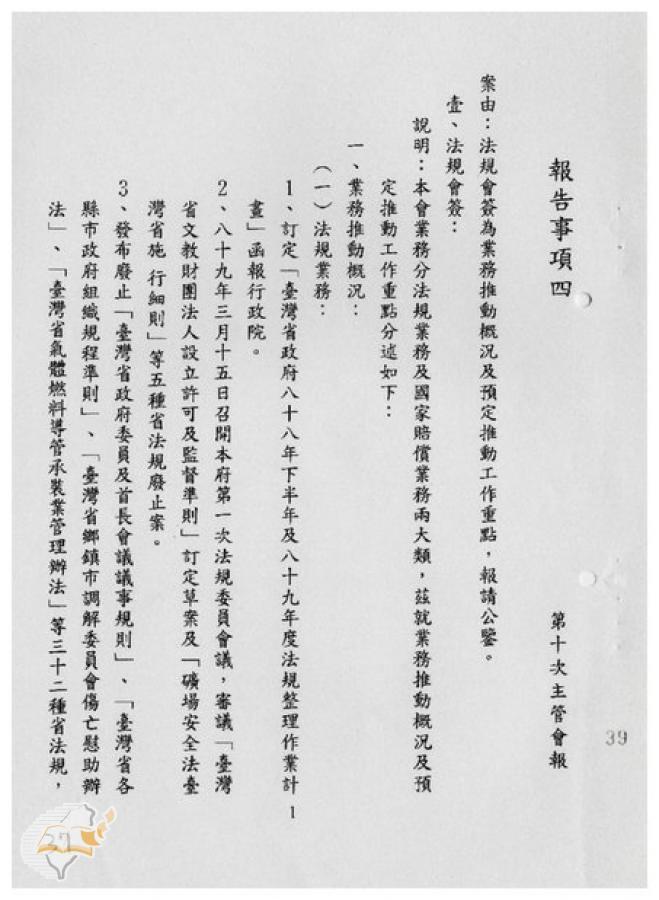 報告事項四
第十次主管會報
39
案由：法規會簽為業務推動概況及預定推動工作重點，報請公鑒。
壹、法規會簽：
說明：本會業務分法規業務及國家賠償業務兩大類，茲就業務推動概況及預
定推動工作重點分述如下：
一、業務推動概況：
（一）法規業務：
1、訂定「臺灣省政府八十八年下半年及八十九年度法規整理作業計
畫」函報行政院。
2、八十九年三月十五日召開本府第一次法規委員會議，審議「臺灣
省文教財團法人設立許可及監督準則」訂定草案及「礦場安全法臺
灣省施 行細則」等五種省法規廢止案。
3、發布廢止「臺灣省政府委員及首長會議議事規則」、「臺灣省各
縣市政府組織規程準則」、「臺灣省鄉鎮市調解委員會傷亡慰助辦
法」、「臺灣省氣體燃料導管承裝業管理辦法」等三十二種省法規，
1